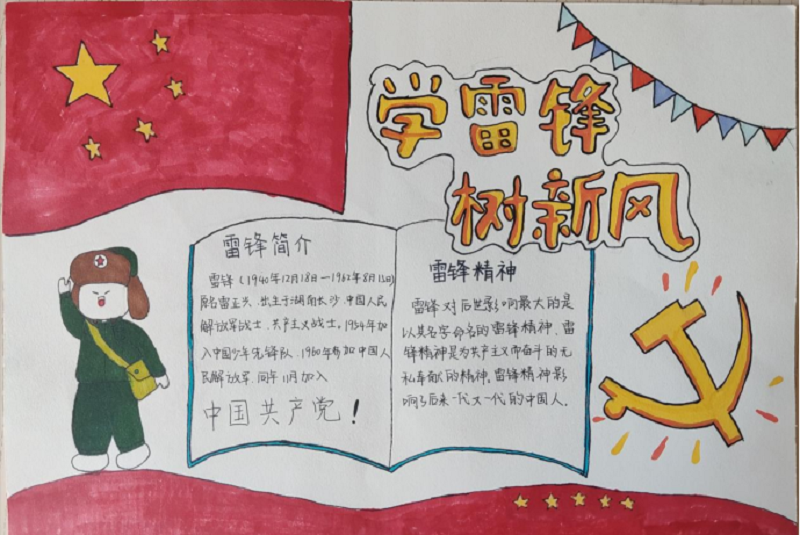 学雷锋
树新风
雷锋简介
雷锋(1940年12月18日—1962年8月15日)
原名雷正兴.出生于湖南长沙.中国人民
解放军战士.共产主义战士,1954年加
入中国少年先锋队.1960年参加中国人
民解放军.同年11月加入
中国共产党!
雷锋精神
雷锋对后世影响最大的是
以其名字命名的雷锋精神.雷
锋精神是为共产主义而奋斗的无
私奉献的精神,雷锋精神影
响了后来一代又一代的中国人.